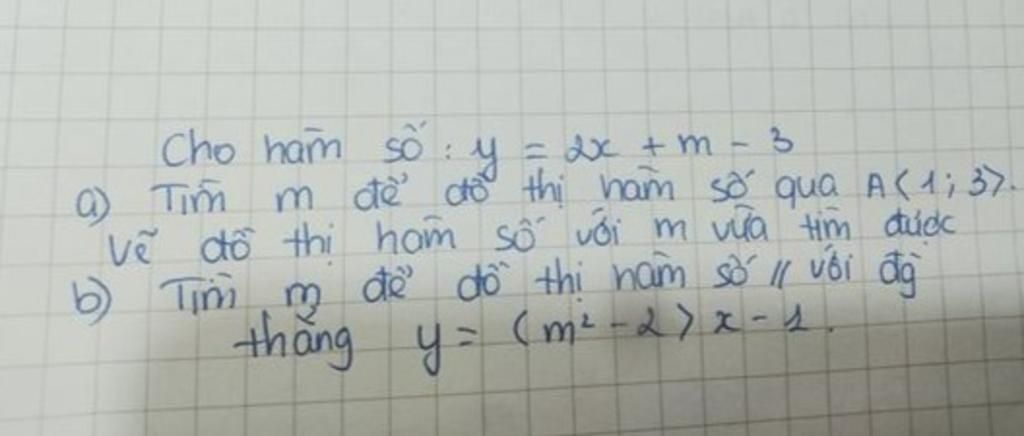 Cho hàm số : y = 2x + m - 3
a) Tìm m để đồ thị hàm số qua A(1; 3).
Vẽ đồ thị hàm số với m vừa tìm được
b) Tìm m để đồ thị hàm số // với đg
thẳng y = (m² - 2) x - 1.